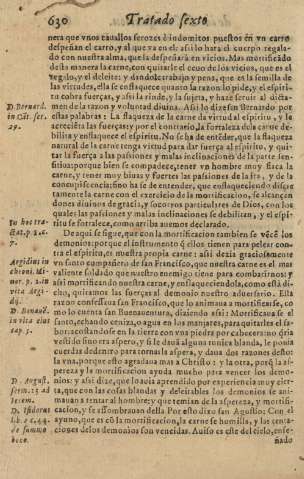 630 Tratado sexto
nera que vnos cauallos feroзes è indomitos puestos en vn carro
despeñan el carro, y al que va en el: assi lo hará el cuerpo regala-
do con nuestra alma, que la despeñará en vicios. Mas mortificado
desta manera la carne, con quitarle el ceuo de los vicios, que es el
regalo, y el deleite: y dandole trabajo y pena, que es la semilla de
las virtudes, ella se enflaquece quanto la razon lo pide, y el espiri-
tu cobra fuerças, y assi la rinde, y la sujeta, y haze seruir al dicta-
men de la razon y voluntad diuina. Assi lo dize san Bernardo por
estas palabras: La flaqueza de la carne da virtud al espiritu, y le
acreciéta las fuerças; y por el contrario, la fortaleza de la carne de-
bilita y enflaquece el espiritu. No se ha de entéder, que la flaqueza
natural de la carne tenga virtud para dar fuerça al espiritu, y qui-
tar la fuerça a las passiones y malas inclinaciones de la parte sen-
sitiua: porque bien se compadece, tener vn hombre muy flaca la
carne, y tener muy biuas y fuertes las passiones de la ira, y de la
concupiscencia: sino ha se de entender, que enflaqueciendo discre
tamente la carne con el exercicio de la mortificacion, se alcançan
dones diuinos de gracia, y socorros particulares de Dios, con los
quales las passiones y malas inclinaciones se debilitan, y el espi-
ritu se fortaleza, como arriba auemos declarado.
De aqui se sigue, que con la mortificacion tambien se vécé los
demonios: porque el instrumento q̃ ellos tienen para pelear con-
tra el espiritu, es nuestra propia carne: assi dezia graciosamente
vn santo compañero de san Francisco, que nuestra carne es el mas
valiente soldado que nuestro enemigo tiene para combatirnos: y
assi mortificando nuestra carne, y enflaqueciendola, como está di-
cho, quitamos las fuerças al demonio nuestro aduersario. Esta
razon confessaua san Francisco, que lo animaua a mortificarse, co
mo lo cuenta san Buenauentura, diziendo assi: Mortificaua se el
santo, echando ceniza, o agua en los manjares, para quitarles el sa-
bor: acostandose en la tierra con vna piedra por cabecera: no q̃ria
vestido sino era aspero, y si le dauã alguna tunica blanda, le ponia
cuerdas de dentro para tornarla aspera, y daua dos razones desto:
la vna, porque esto agradaua mas a Christo: y la otra, porq̃ la as-
pereza y la mortificacion ayuda mucho para vencer los demo-
nios: y assi dize, que lo auia aprendido por experiencia muy cier-
ta, que con las cosas blandas y deleitables los demonios se ani-
mauan a tentar al hombre; y que temian de la aspereza, y mortifi-
cacion, y se assombrauan della. Por esto dixo san Agustin: Con el
ayuno, que es cõ la mortificacion, la carne se humilla, y las tenta-
ciones de los demonios son vencidas. Auiso es este del cielo, ense-
ñado
D. Bernard.
in Cãt. ser.
29.
In hoc tra-
ctat. p. 2. c.
7.
Aegidius in
chroni. Mi-
nor. p. 2. in
vita Aegi-
dij.
D. Bonauẽ.
in vita eius
cap. 5.
D. August.
serm. 23. ad
D. Isidorus
lib. 2. c. 44.
de summo
bono.